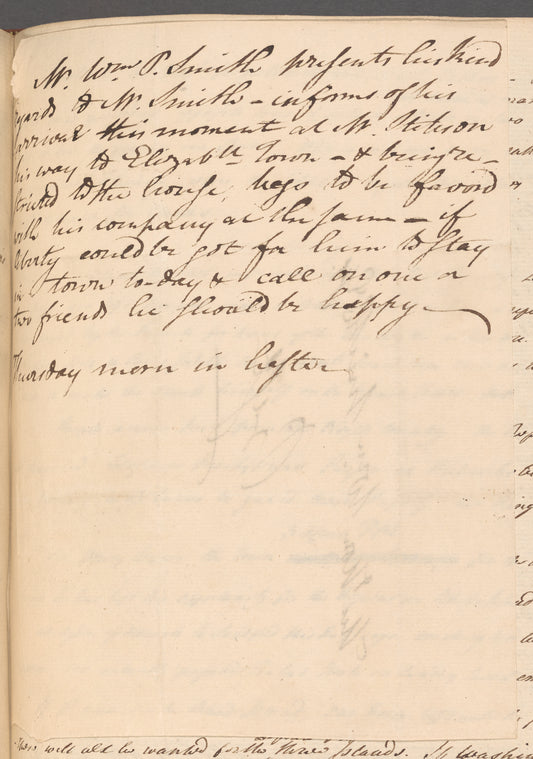 Mr. Wm. P. Smith presents his kind
regards to Mr Smith - informs of his
arrival this moment at Mr. Stitson
his way to Elizabth Town - & being re-
stricted to the house, begs to be favord
with his company at the same - if
liberty could be got for him to stay
in town to-day & call on one or
two friends he should be happy
Thursday morn in haste
There will all be wanted for the three Islands. If Washin